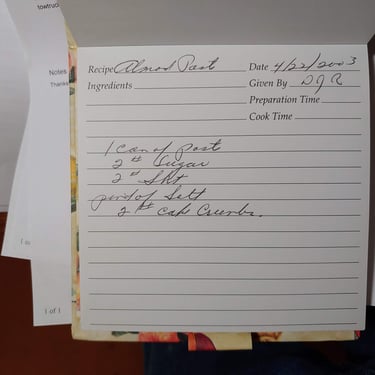 towtruo
Notes
Thanks
Recipe Almond Past Date 4/22/2003
Ingredients Given By DJR
Preparation Time
Cook Time
1 Can of Past
2 # Sugar
2 # Sht
pinch of Salt
2 # Cake Crumbs.
1 of 1